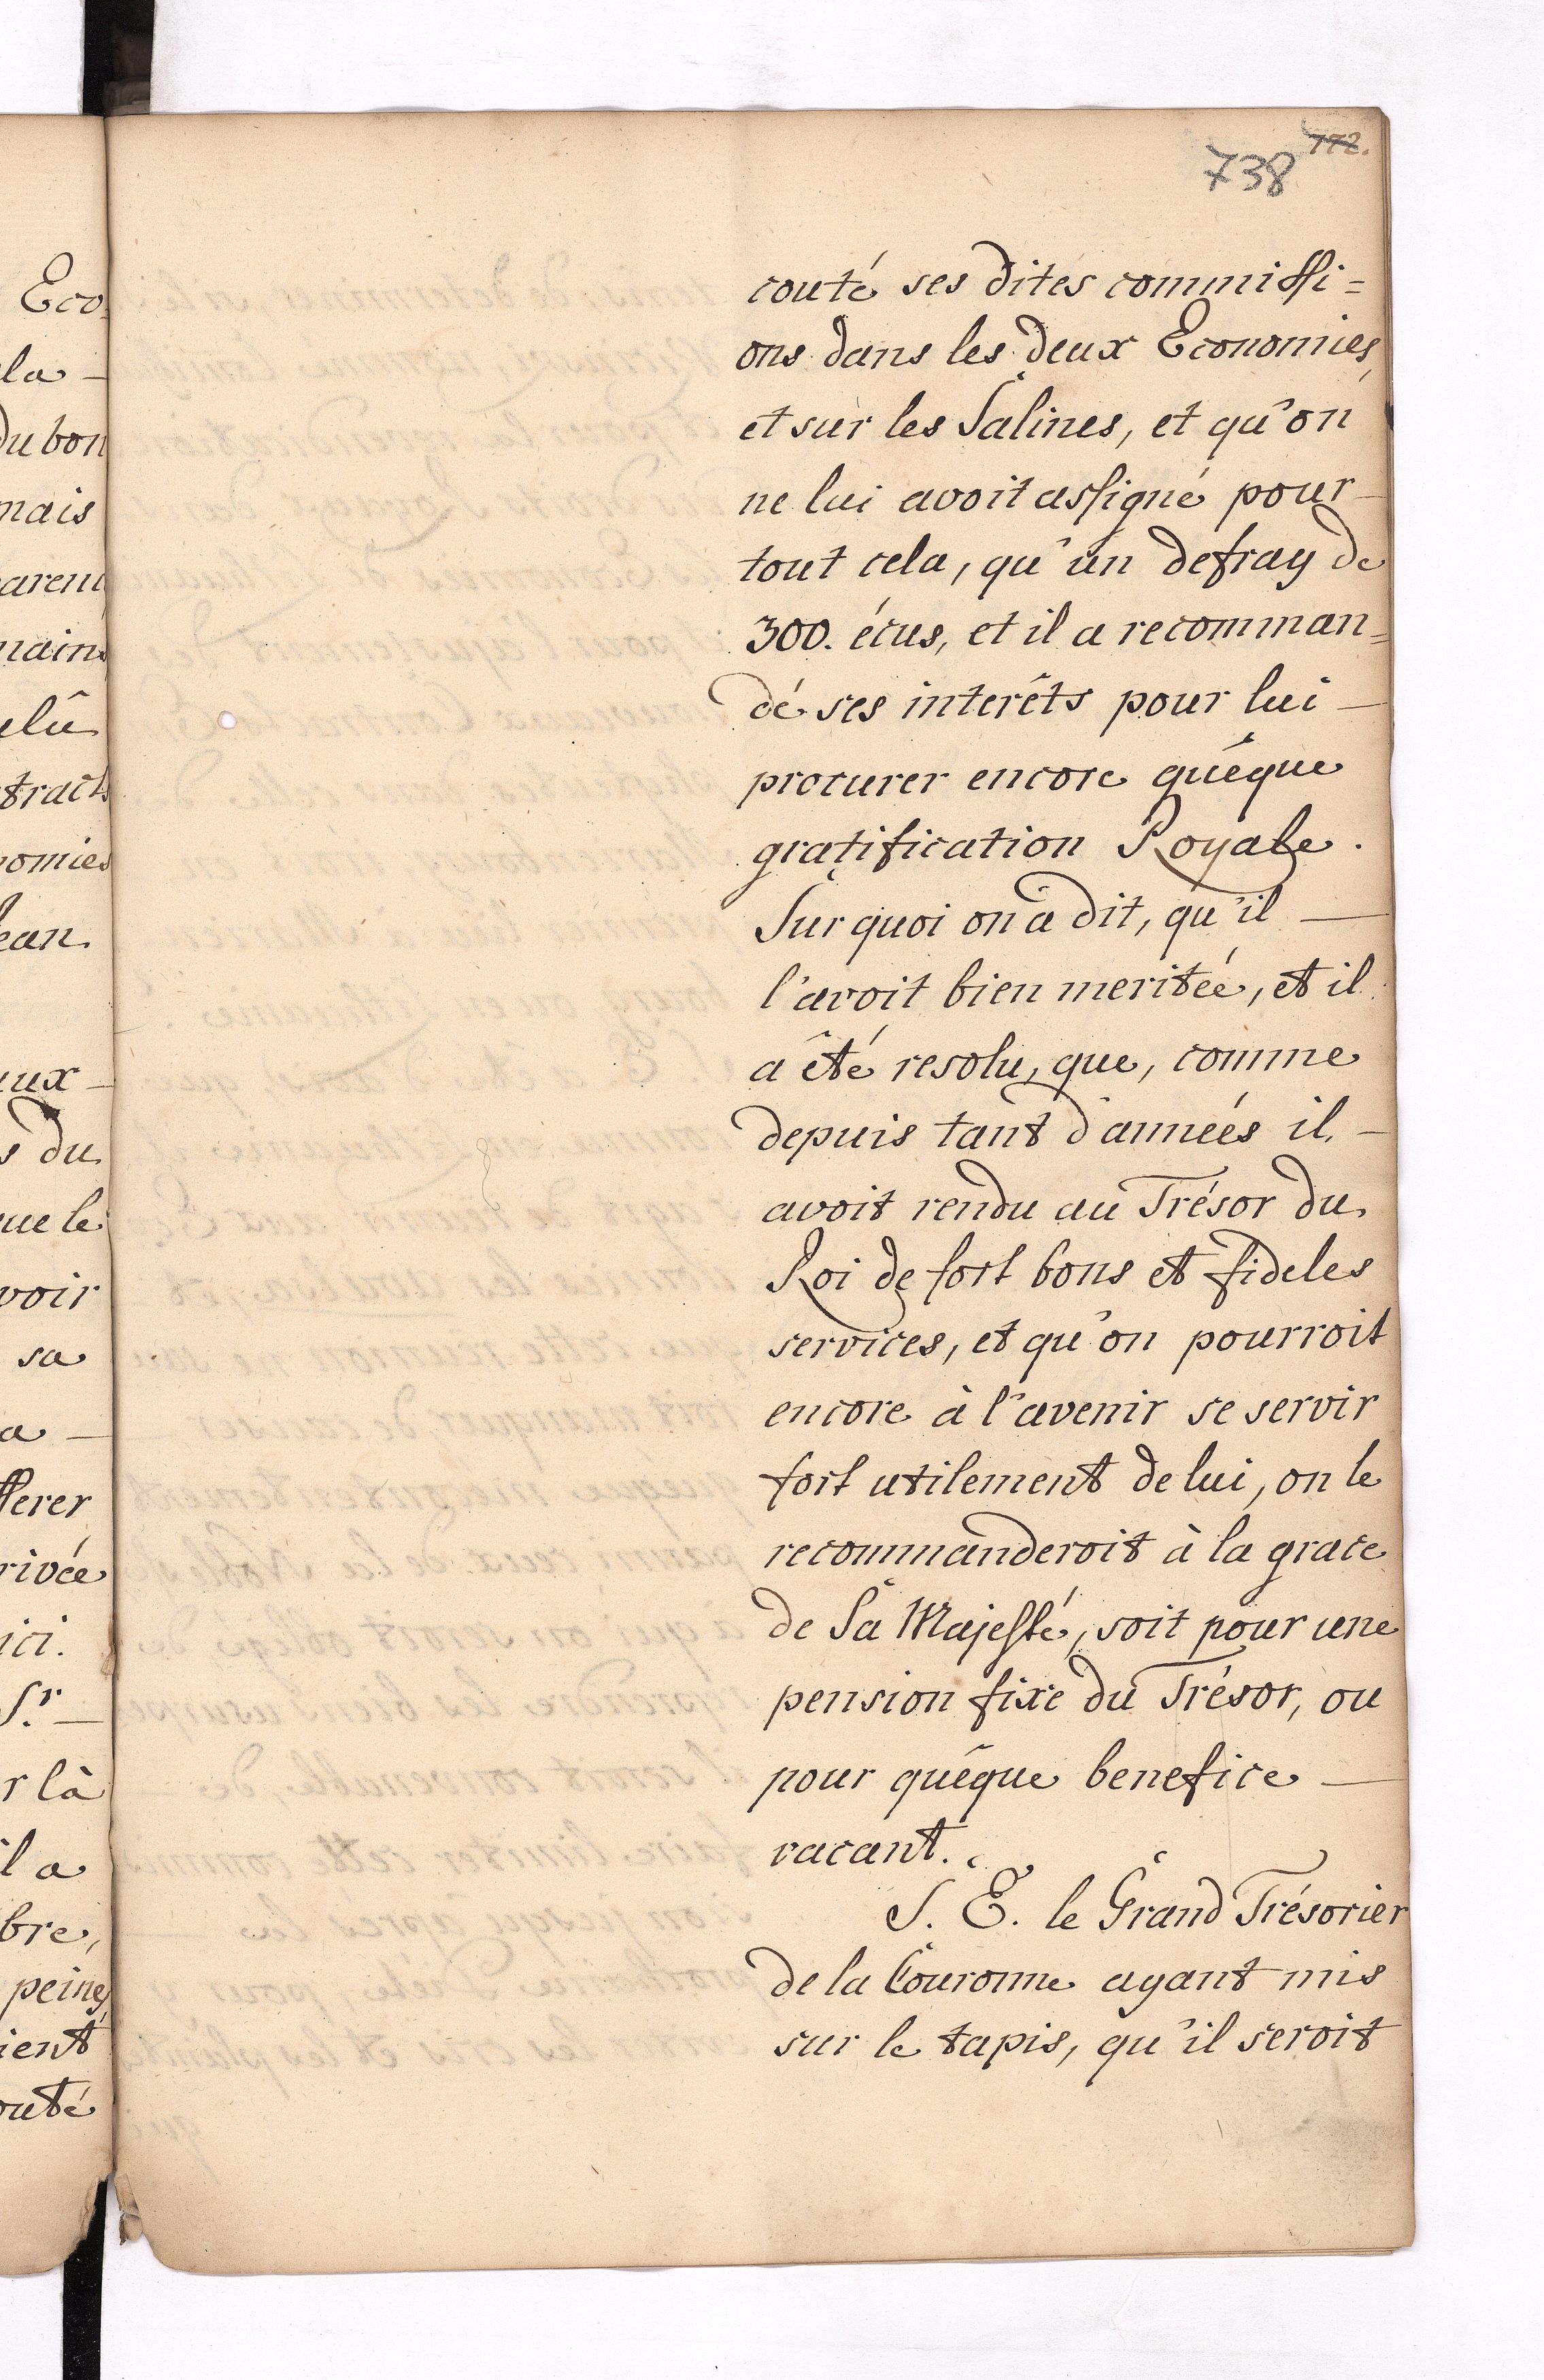 772.
738
couté ses dites commissi=
ons dans les deux Economies,
et sur les Salines, et qu'on
ne lui avoit assigné pour
tout cela, qu'un defray de
300. écus, et il a recomman=
dé ses interêts pour lui
procurer encore quêque
gratification Royale.
Sur quoi on a dit, qu'il
l'avoit bien meritée, et il
a êté resolu, que, comme
depuis tant d'années il
avoit rendu au Trésor du
Roi de fort bons et fideles
services, et qu'on pourroit
encore à l'avenir se servir
fort utilement de lui, on le
recommanderoit à la grace
de Sa Majesté, soit pour une
pension fixe du Trésor, ou
pour quêque benefice
vacant.
S. E. le Grand Trésorier
de la Couronne ayant mis
sur le tapis, qu'il seroit